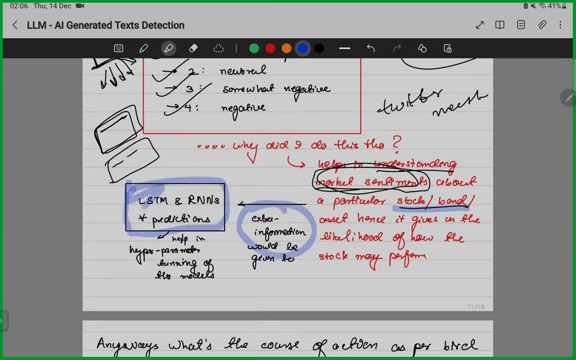 02:06 Thu, 14 Dec
41%
LLM - AI Generated Texts Detection
2: neutral
3: somewhat negative
4: negative
twitter
.... why did I do this tho ?
helps in understanding
market sentiments about
a particular stock/bond/
asset hence it gives us the
likelihood of how the
stock may perform
LSTM & RNNs
+ predictions
extra-
information
would be
given to
help in
hyper-parameter
tunning of
the models
11/19
Anyways what's the course of action as per